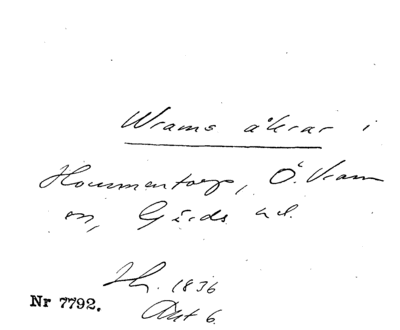 Wrams åkrar i
Housmantorp, Ö. Vram
m, Gärds hd.
Lh. 1836
Akt 6.
Nr 7792.